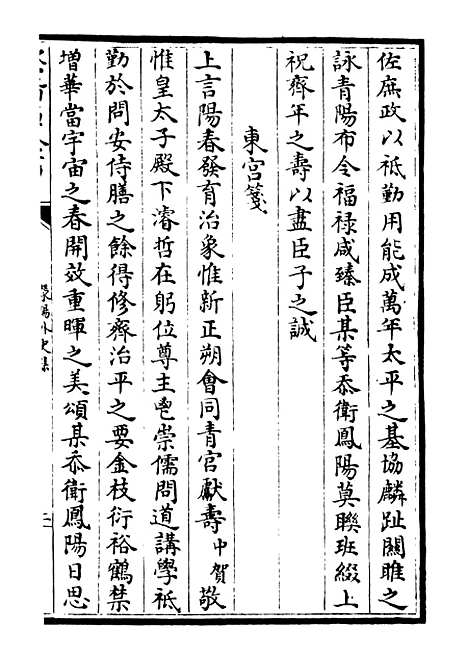 佐庶政以祗勤用能成萬年太平之基協麟趾關雎之
詠青陽布令福禄咸臻臣某等忝衛鳳陽莫聨班綴上
祝齊年之壽以盡臣子之誠
東宫箋
上言陽春發育治象惟新正朔會同青宫獻壽中賀敬
惟皇太子殿下濬哲在躬位尊主鬯崇儒問道講學祗
勤於問安侍膳之餘得修齊治平之要金枝衍裕鶴禁
增華當宇宙之春開效重暉之美頌某忝衛鳳陽日思
外史集